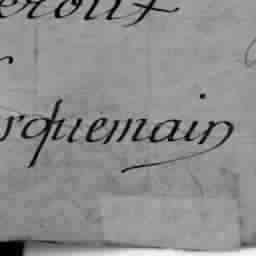 eroux
rquemain